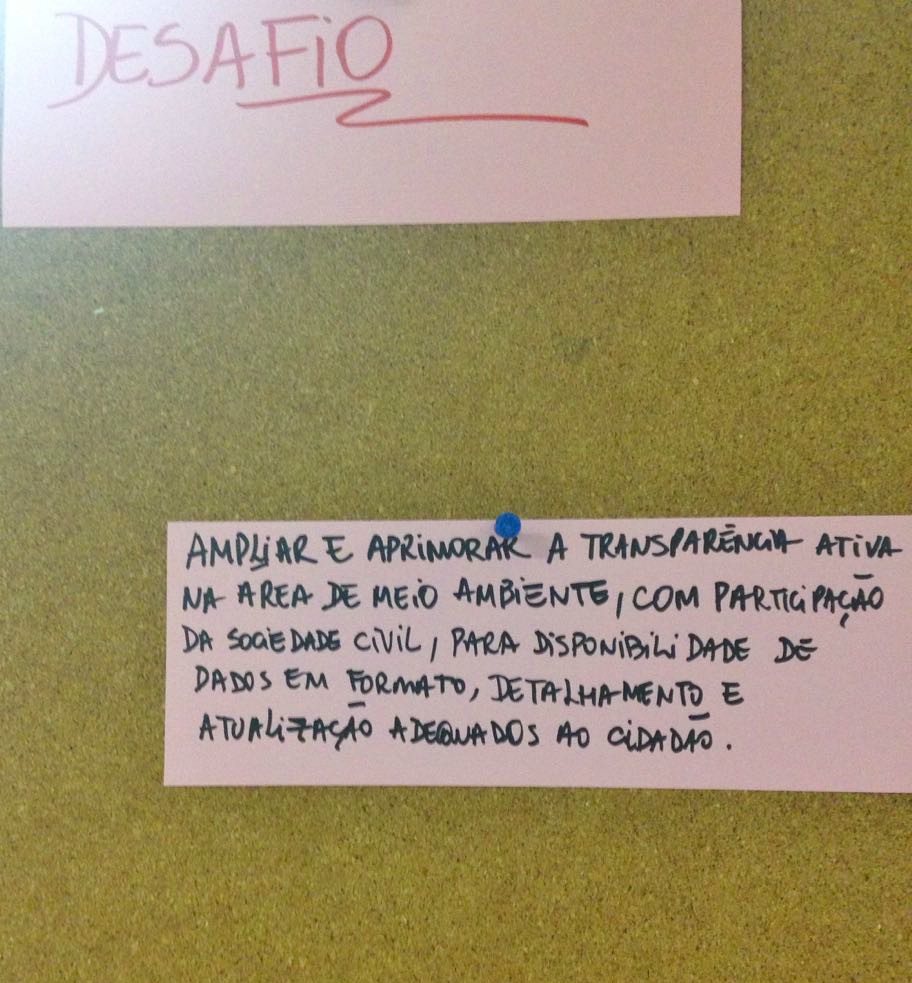 DESAFIO
AMPLIAR E APRIMORAR A TRANSPARÊNCIA ATIVA
NA AREA DE MEIO AMBIENTE, COM PARTICIPAÇÃO
DA SOCIEDADE CIVIL, PARA DISPONIBILIDADE DE
DADOS EM FORMATO, DETALHAMENTO E
ATUALIZAÇÃO ADEQUADOS AO CIDADÃO.